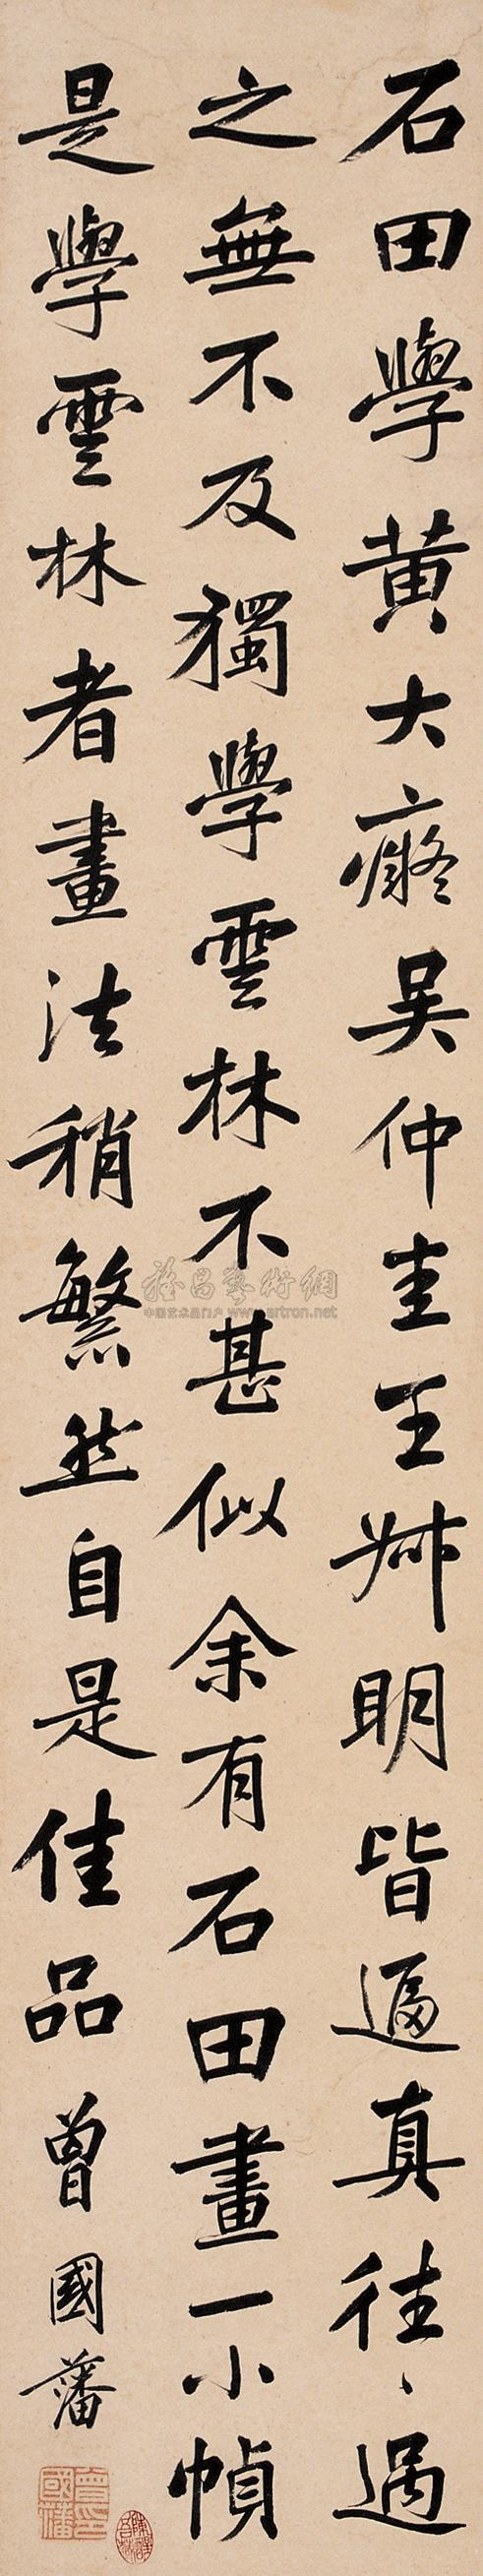 石田學黄大癡吴仲圭王叔明皆逼真往々過
之無不及獨學雲林不甚似余有石田畫一小幀
是學雲林者畫法稍繁然自是佳品 曾國藩
雅昌藝術網
中国艺术品门户 www.artron.net